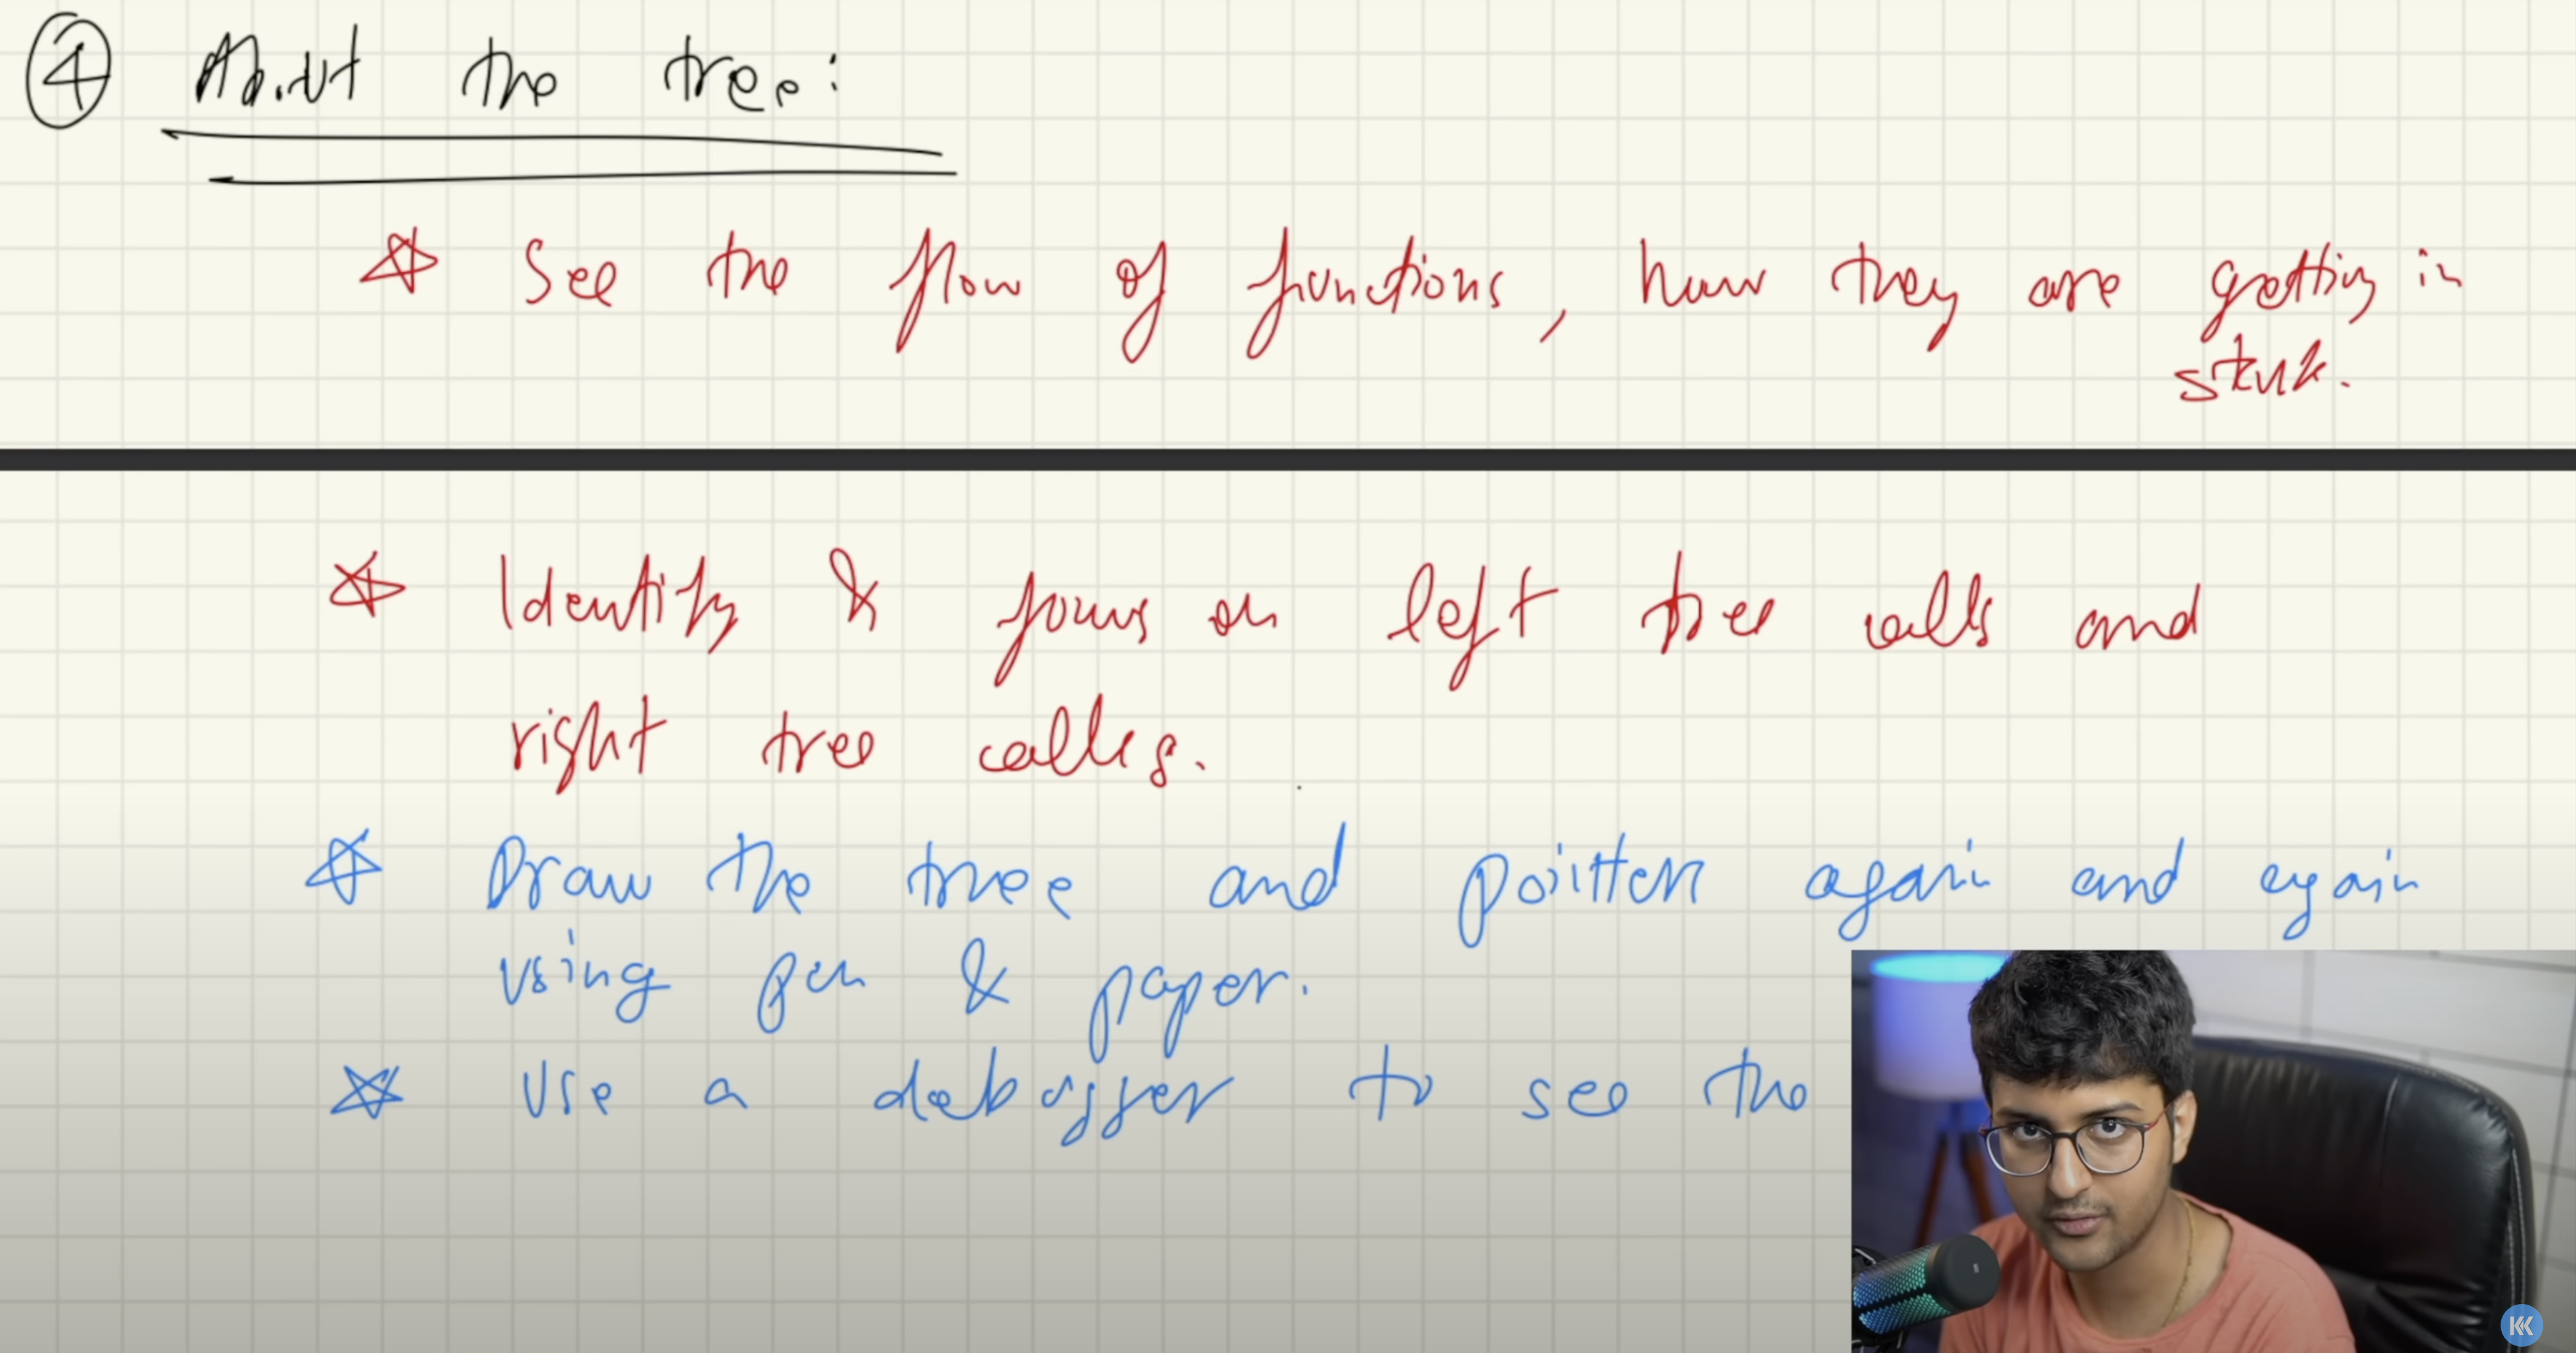 ④ About the tree:
☆ See the flow of functions, how they are getting in
stack.
☆ Identify & focus on left tree calls and
right tree calls.
☆ Draw the tree and pointers again and again
using pen & paper.
☆ Use a debugger to see the
KK